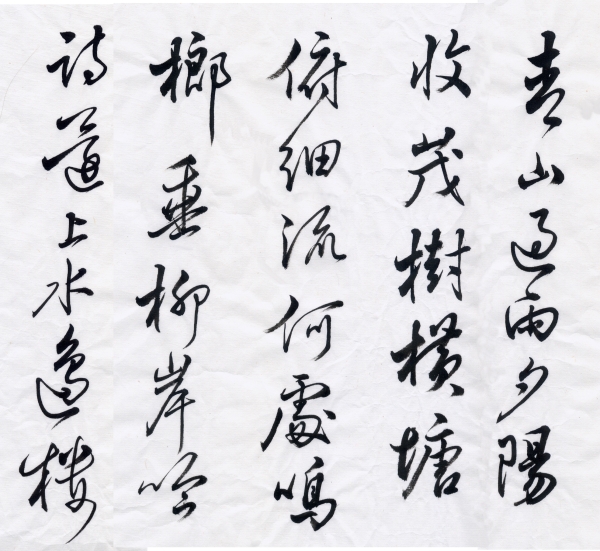 青山過雨夕陽
收茂樹橫塘
俯細流何處鳴
榔垂柳岸吟
詩還上水邊樓